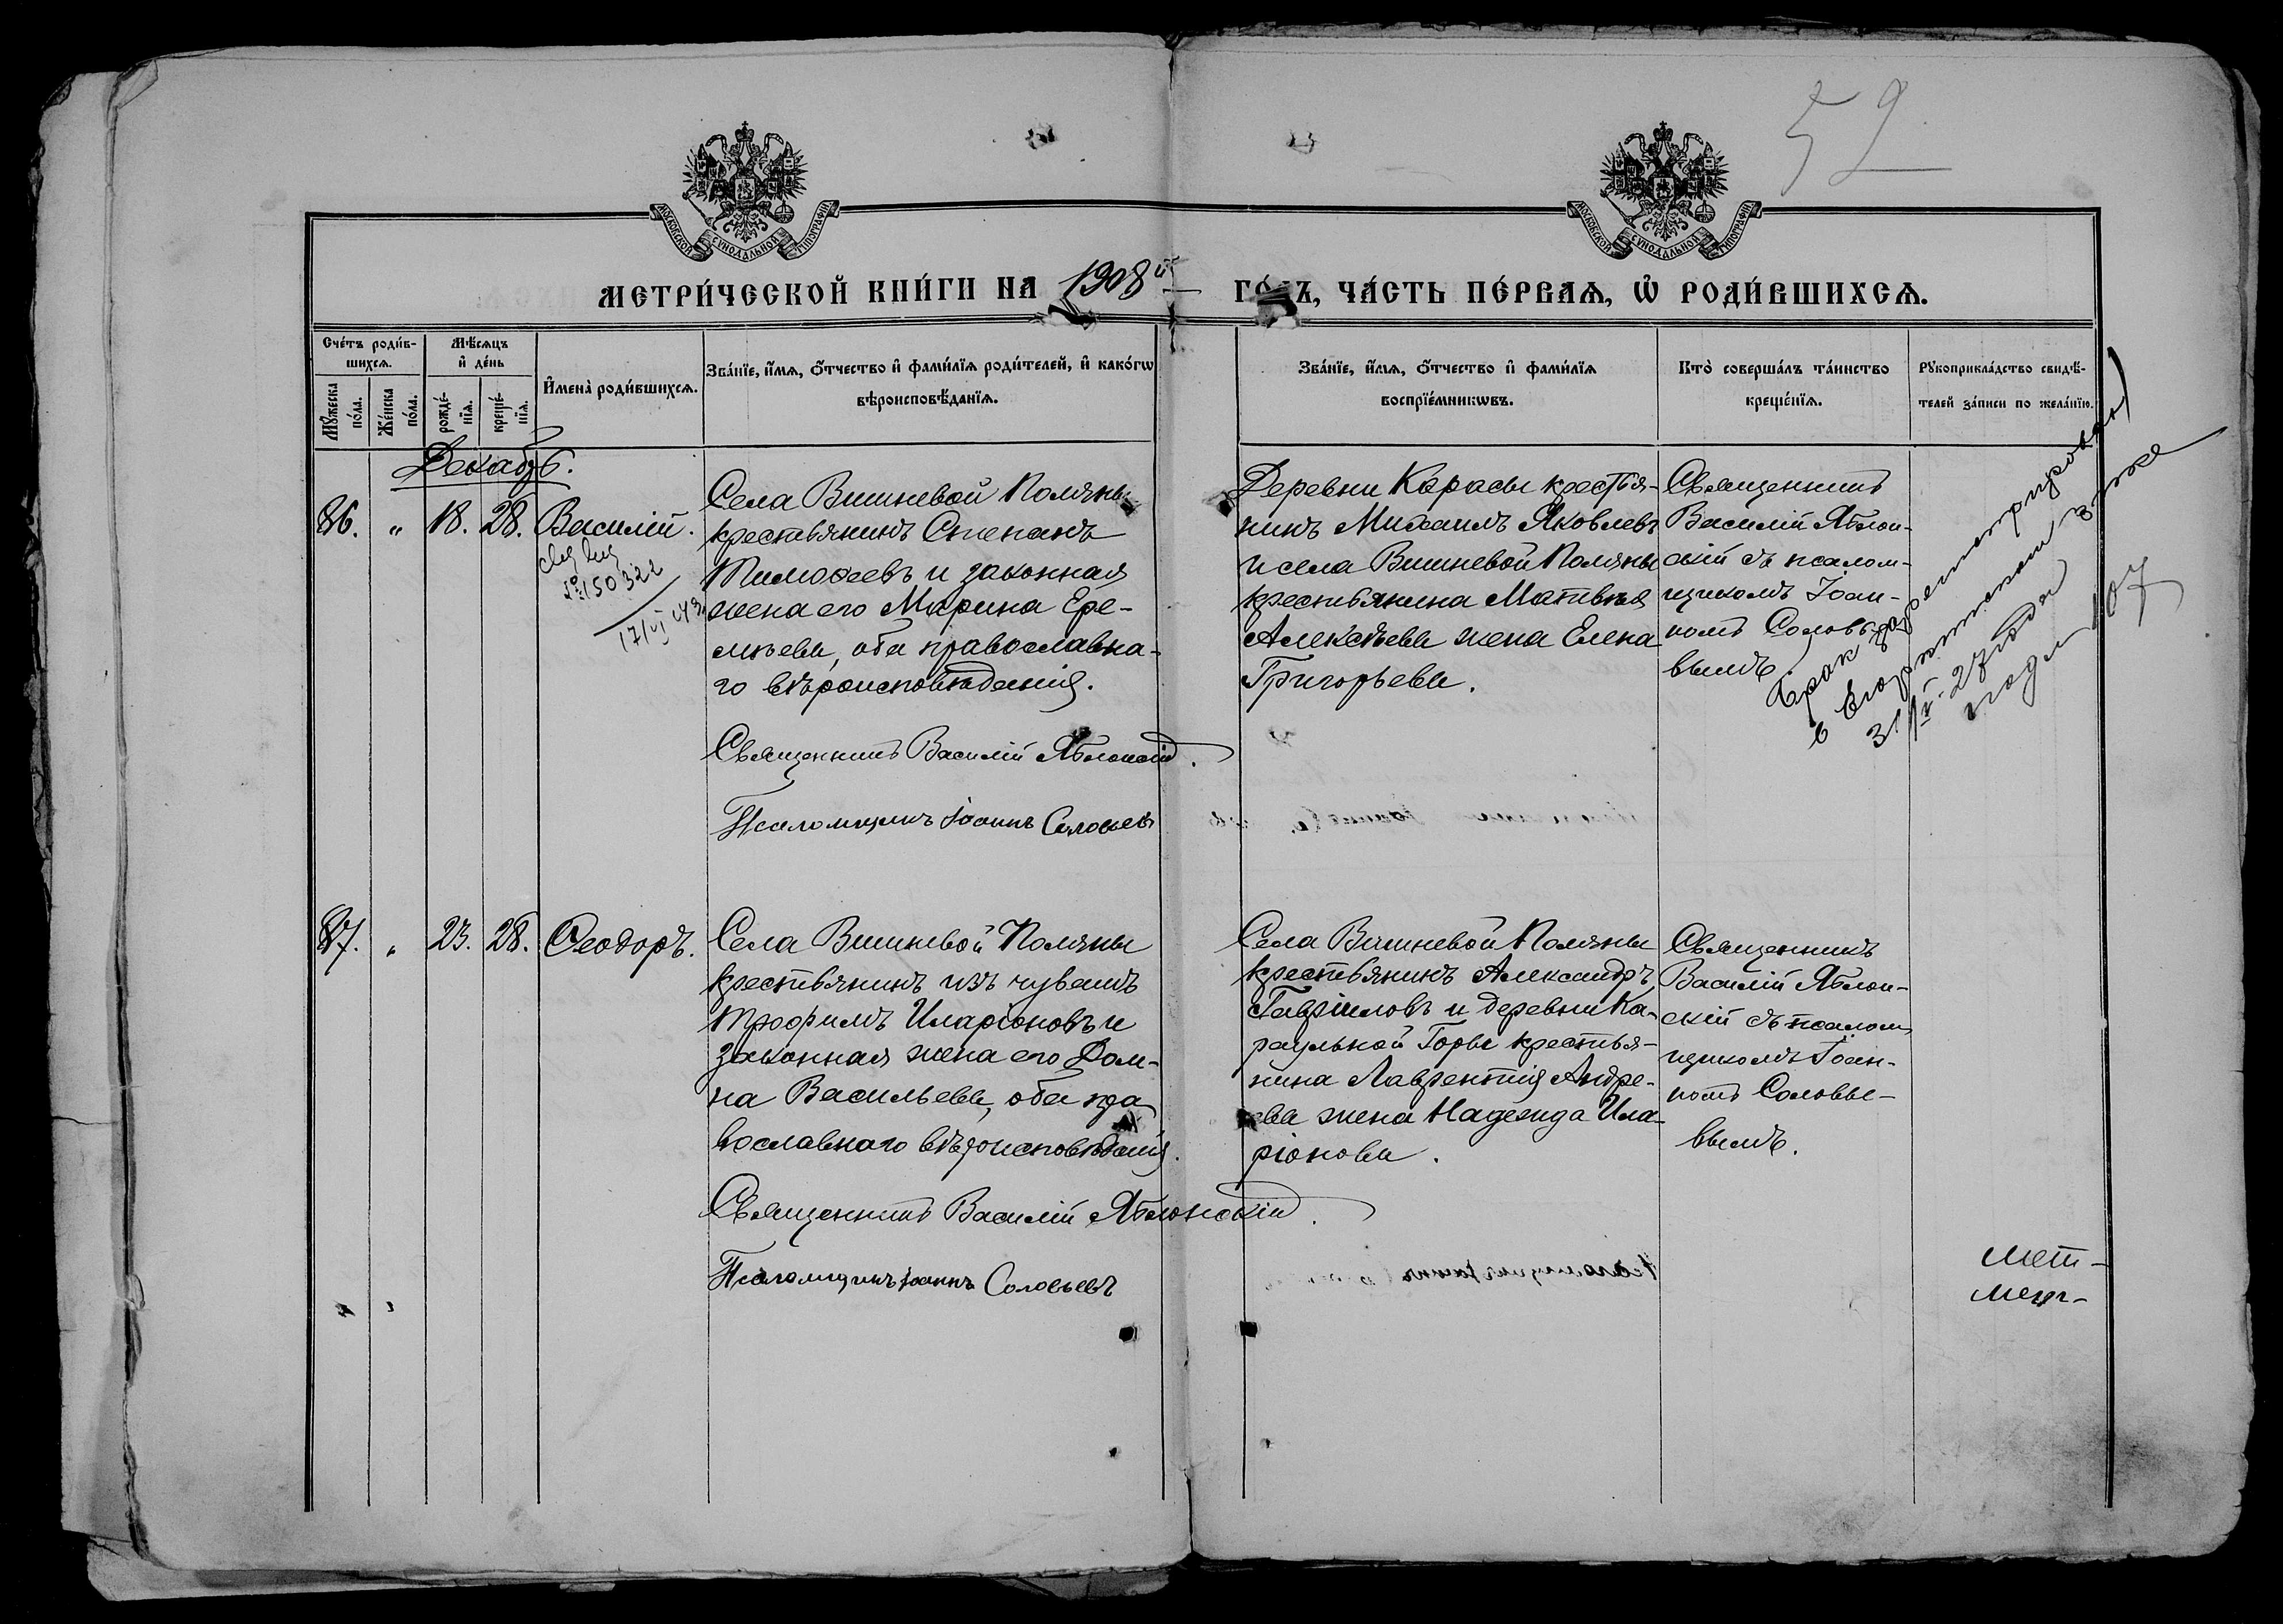 52
МОСКОВСКОЙ СѴНОДАЛЬНОЙ ТИПОГРАФІИ
МОСКОВСКОЙ СѴНОДАЛЬНОЙ ТИПОГРАФІИ
МЕТРИ́ЧЕСКОЙ КНИ́ГИ НА 1908й ГО́ДЪ, ЧА́СТЬ ПЕ́РВАѦ, Ѡ҆ РОДИ́ВШИХСѦ.
Сче́тъ роди́в-
шихсѧ.
Мꙋ́жеска
по́ла.
Же́нска
по́ла.
Мѣ́сѧцъ
и҆ де́нь
рожде́-
нїѧ.
креще́-
нїѧ.
И҆мена̀ роди́вшихсѧ.
Зва́нїе, и҆́мѧ, ѻ҆́тчество и҆ фами́лїѧ роди́телей, и҆ како́гѡ
вѣроисповѣ́данїѧ.
Зва́нїе, и҆́мѧ, ѻ҆́тчество и҆ фами́лїѧ
воспрїе́мникѡвъ.
Кто̀ соверша́лъ та́инство
креще́нїѧ.
Рꙋкоприкла́дство свидѣ́-
телей за́писи по жела́нїю.
Декабрь.
86. " 18. 28. Василій.
№ 150322
Села Вишневой Поляны
крестьянинъ Степанъ
Тимоѳеевъ и законная
жена его Марина Ере-
мѣева, оба православна-
го вѣроисповѣданія.
Священникъ Василій Яблонскій.
Псаломщикъ Іоаннъ Соловьевъ
Деревни Карасы крестья-
нинъ Михаилъ Яковлевъ
и села Вишневой Поляны
крестьянина Матвѣя
Алексѣева жена Елена
Григорьева.
Священникъ
Василій Яблон-
скій съ псалом-
щикомъ Іоан-
номъ Соловье-
вымъ
брак зарегистрирован
в
27 года
107
87. " 23. 28. Ѳеодоръ.
Села Вишневой Поляны
крестьянинъ изъ чувашъ
Трофимъ Иларіоновъ и
законная жена его Дом-
на Васильева, оба пра
вославнаго вѣроисповѣданія.
Священникъ Василій Яблонскій.
Псаломщикъ Іоаннъ Соловьевъ
Села Вишневой Поляны
крестьянинъ Александръ
Гавріиловъ и деревни Ка-
раульной Горы крестья-
нина Лаврентія Андре-
ева жена Надежда Ила-
ріонова.
Священникъ
Василій Яблон-
скій съ псалом
щикомъ Іоан-
номъ Соловье-
вымъ.